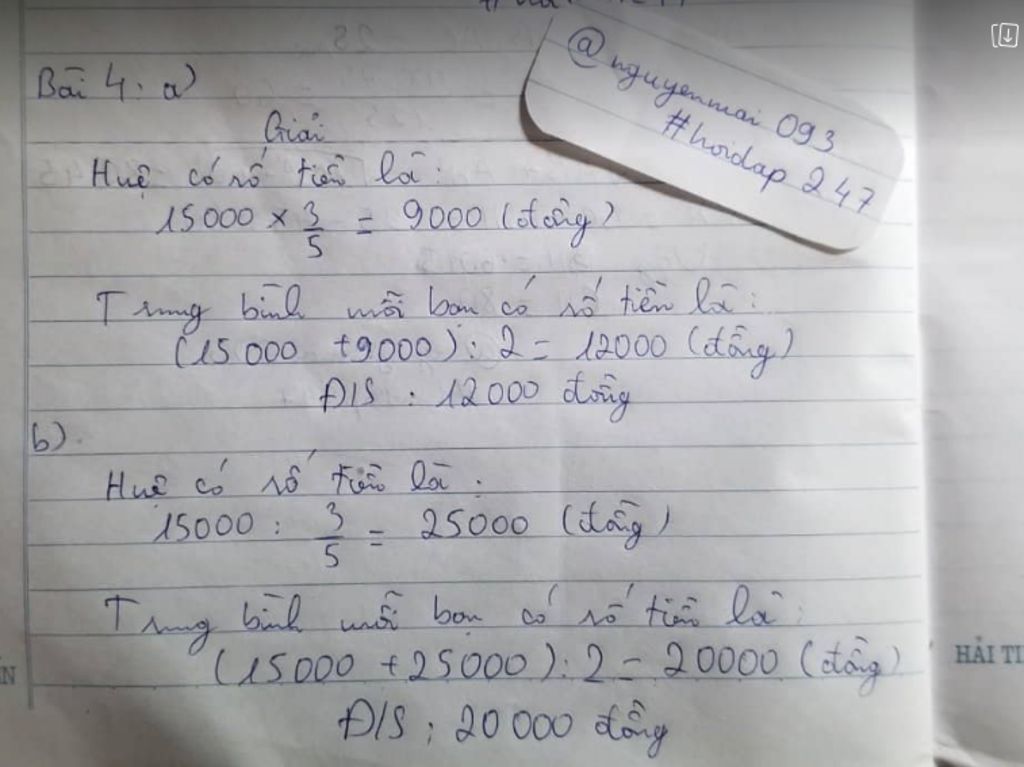 Bài 4: a)
@nguyenmai 093
#hoidap 247
Giải
Huệ có số tiền là:
15000 × 3/5 = 9000 (đồng)
Trung bình mỗi bạn có số tiền là:
(15000 + 9000) : 2 = 12000 (đồng)
Đ/S : 12000 đồng
b)
Huệ có số tiền là:
15000 : 3/5 = 25000 (đồng)
Trung bình mỗi bạn có số tiền là:
(15000 + 25000) : 2 = 20000 (đồng)
HẢI TI
Đ/S : 20000 đồng